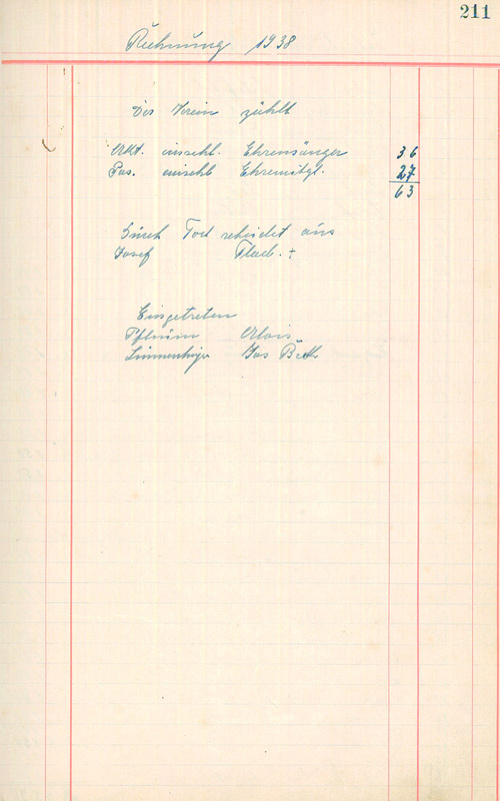 211
Rechnung 1938
Der Verein zählt
Akt. einschl. Ehrensänger 36
Pas. einschl Ehremitgl. 27
63
Durch Tod scheidet aus
Josef Flad. +
Eingetreten
Pflaum Alois
Jos